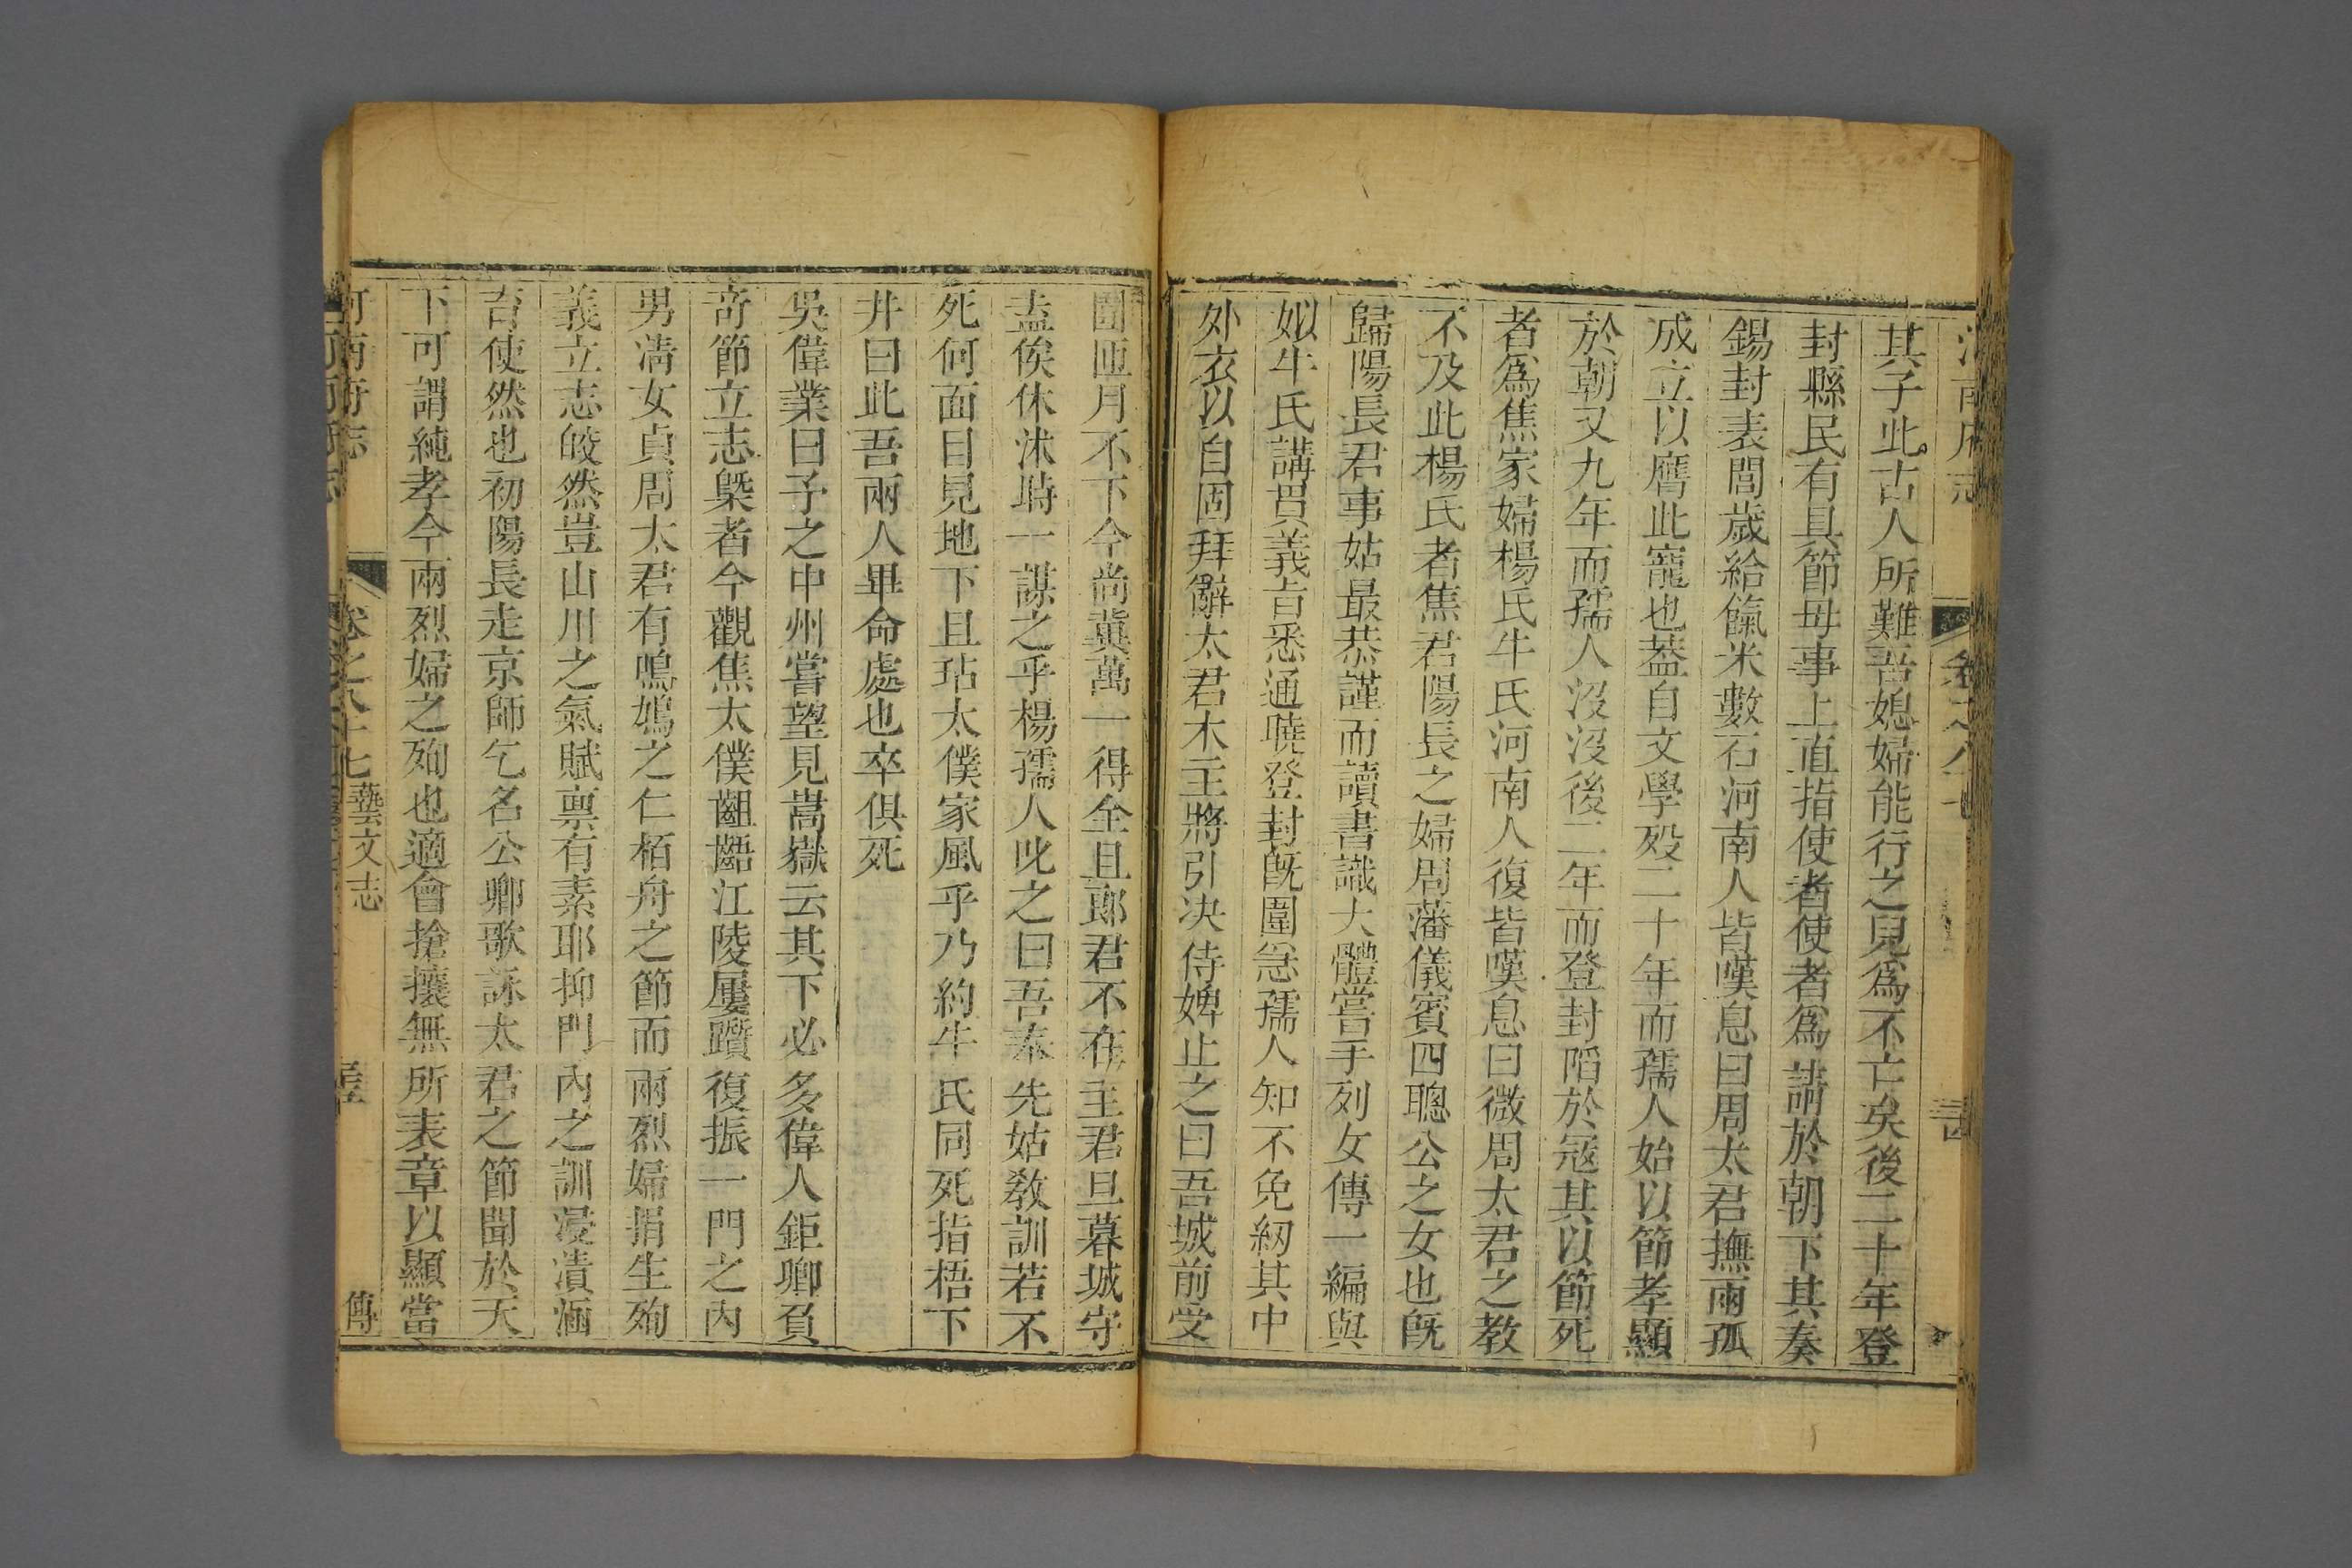 河南府志 卷之八十七
其子此古人所難吾媳婦能行之兒爲不亡矣後二十年登
封縣民有具節毋事上直指使者使者爲請於朝下其奏
錫封表閭歲給餼米數石河南人皆嘆息曰周太君撫兩孤
成立以膺此寵也葢自文學殁二十年而孺人始以節孝顯
於朝又九年而孺人沒沒後二年而登封陷於冦其以節死
者爲焦家婦楊氏牛氏河南人復皆嘆息曰微周太君之教
不及此楊氏者焦君陽長之婦周藩儀賓四聰公之女也旣
歸陽長君事姑最恭謹而讀書識大體嘗手列女傳一編與
姒牛氏講貫義㫖悉通曉登封旣圍急孺人知不免紉其中
外衣以自固拜辭太君木主將引决侍婢止之曰吾城前受
圍匝月不下今尚冀萬一得全且郎君不在主君旦暮城守
盍俟休沐時一謀之乎楊孺人叱之曰吾奉先姑敎訓若不
死何面目見地下且玷太僕家風乎乃約牛氏同死指梧下
井曰此吾兩人畢命處也卒俱死
吳偉業曰予之中州嘗望見嵩嶽云其下必多偉人鉅卿負
奇節立志槩者今觀焦太僕齟齬江陵屢躓復振一門之內
男淸女貞周太君有鳴鳩之仁栢舟之節而兩烈婦捐生殉
義立志皎然豈山川之氣賦禀有素耶抑門內之訓浸漬涵
育使然也初陽長走京師乞名公卿歌詠太君之節聞於天
下可謂純孝今兩烈婦之殉也適會搶攘無所表章以顯當
河南府志 卷之八十七 藝文志 傳